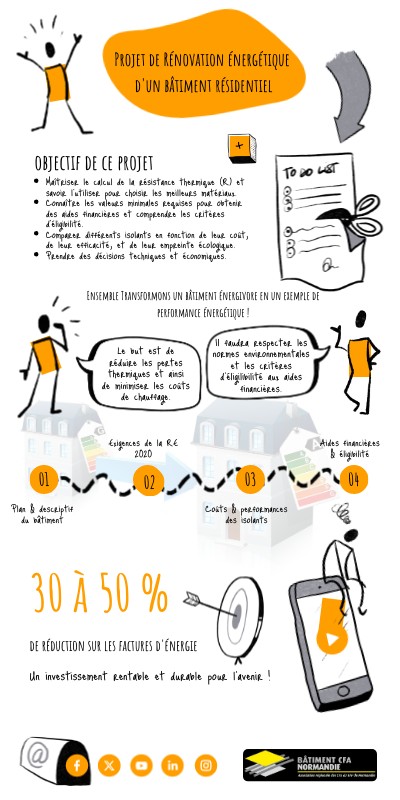 Projet de Rénovation énergétique
d'un bâtiment résidentiel
+
TO DO LIST
OBJECTIF DE CE PROJET
Maîtriser le calcul de la résistance thermique (R) et
savoir l'utiliser pour choisir les meilleurs matériaux.
Connaître les valeurs minimales requises pour obtenir
des aides financières et comprendre les critères
d'éligibilité.
Comparer différents isolants en fonction de leur coût,
de leur efficacité, et de leur empreinte écologique.
Prendre des décisions techniques et économiques.
Ensemble Transformons un bâtiment énergivore en un exemple de
performance énergétique !
Le but est de
réduire les pertes
thermiques et ainsi
de minimiser les coûts
de chauffage.
Il faudra respecter les
normes environnementales
et les critères
d'éligilibilité aux aides
financières.
Exigences de la RE
2020
Aides financières
& éligibilité
01
02
03
04
Plan & descriptif
du bâtiment
Coûts & performances
des isolants
30 À 50 %
de réduction sur les factures d'énergie
Un investissement rentable et durable pour l'avenir !
@
BÂTIMENT CFA
NORMANDIE